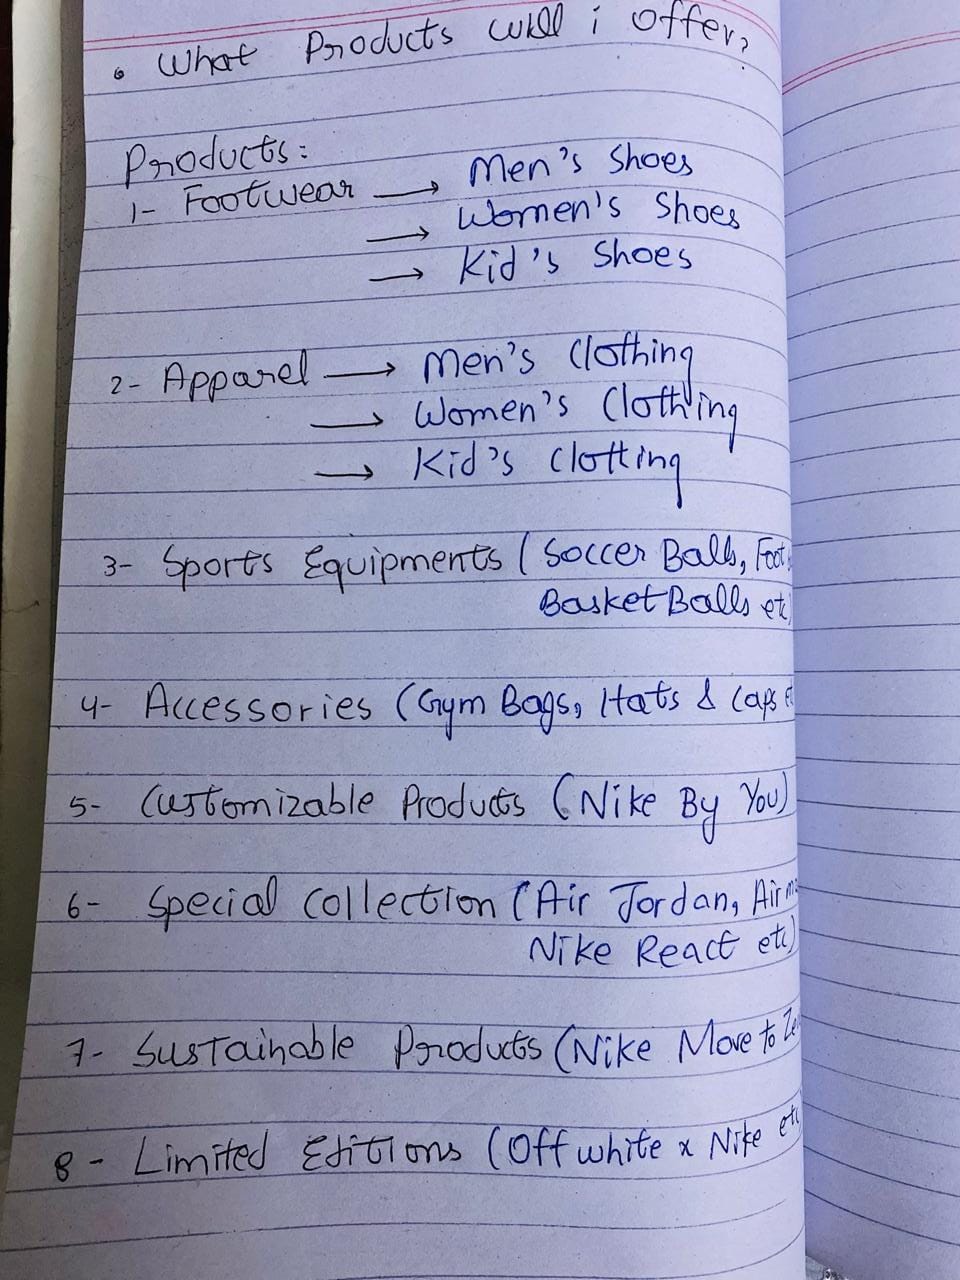 • What Products will i offer?
Products:
1- Footwear → Men's Shoes
→ Women's Shoes
→ Kid's Shoes
2- Apparel → Men's Clothing
→ Women's Clothing
→ Kid's Clotting
3- Sports Equipments (Soccer Balls, Foot
BasketBalls etc)
4- Accessories (Gym Bags, Hats & Caps e
5- Customizable Products (Nike By You)
6- Special Collection (Air Jordan, Air m
Nike React etc)
7- Sustainable Products (Nike Move to Ze
8- Limited Editions (Off white x Nike etc